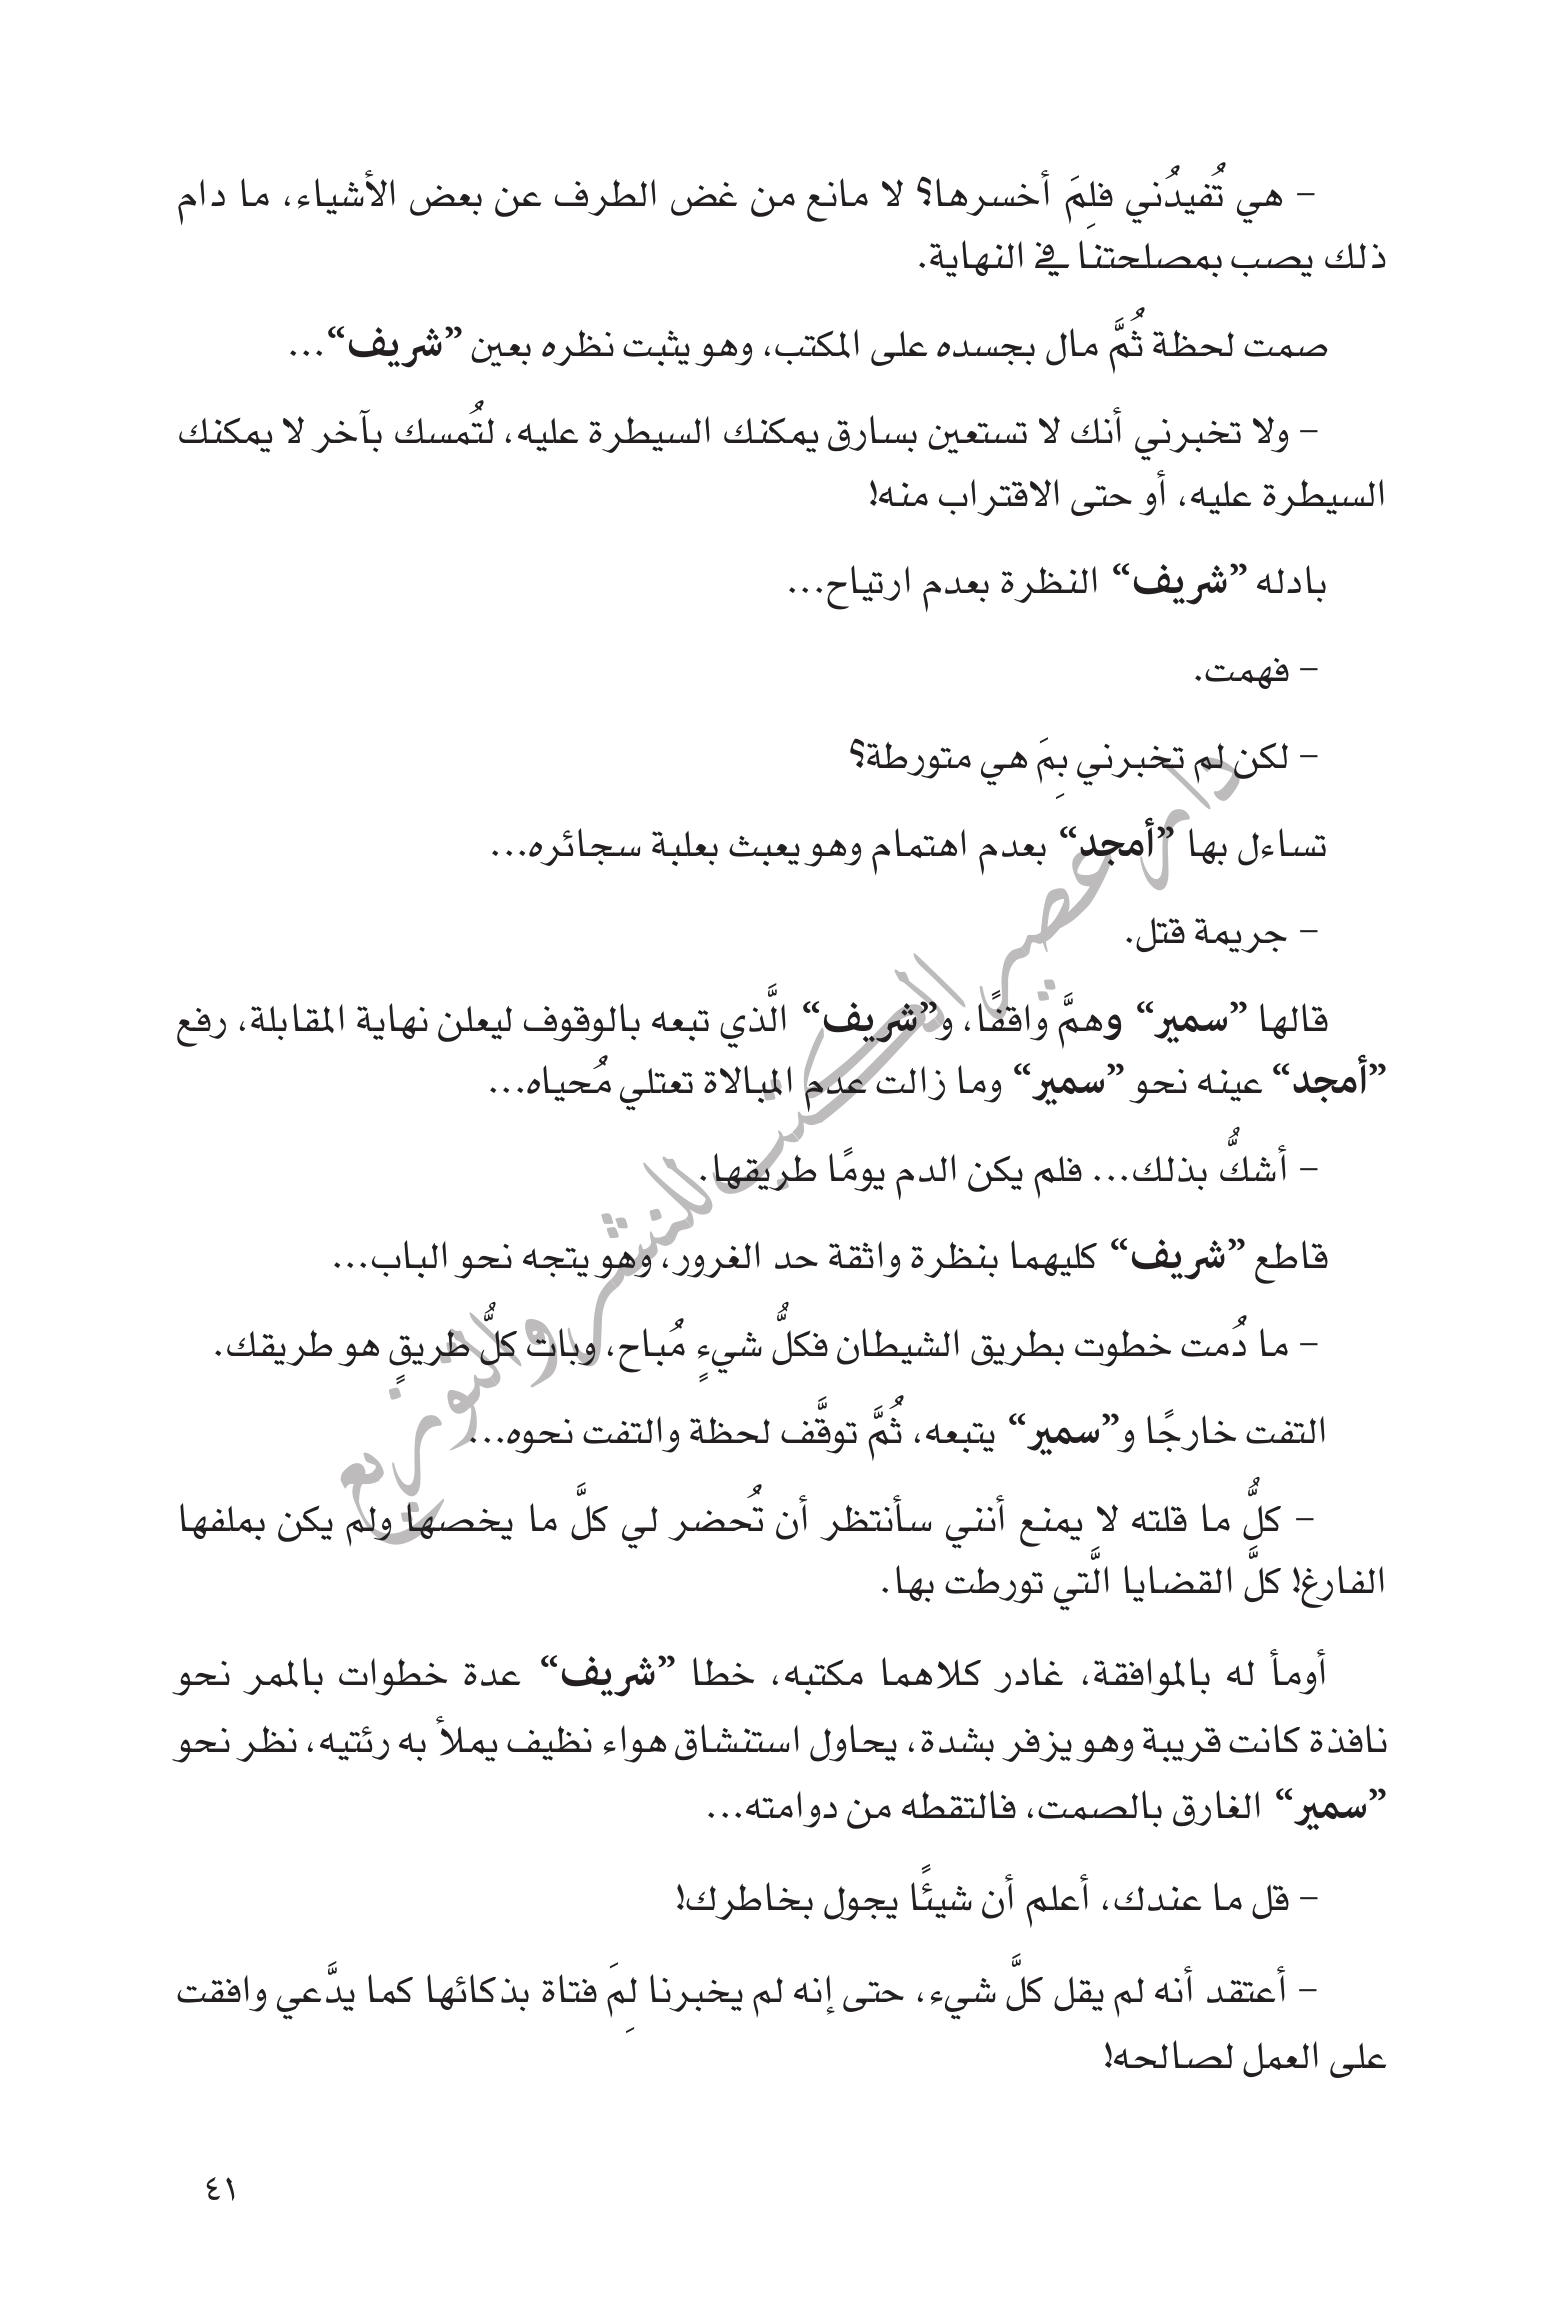 – هي تُفيدُني فلِمَ أخسرها؟ لا مانع من غض الطرف عن بعض الأشياء، ما دام
ذلك يصب بمصلحتنا في النهاية.
صمت لحظة ثُمَّ مال بجسده على المكتب، وهو يثبت نظره بعين ”شريف“...
– ولا تخبرني أنك لا تستعين بسارق يمكنك السيطرة عليه، لتُمسك بآخر لا يمكنك
السيطرة عليه، أو حتى الاقتراب منه!
بادله ”شريف“ النظرة بعدم ارتياح...
– فهمت.
– لكن لم تخبرني بِمَ هي متورطة؟
تساءل بها ”أمجد“ بعدم اهتمام وهو يعبث بعلبة سجائره...
– جريمة قتل.
قالها ”سمير“ وهمَّ واقفًا، و”شريف“ الَّذي تبعه بالوقوف ليعلن نهاية المقابلة، رفع
”أمجد“ عينه نحو ”سمير“ وما زالت عدم المبالاة تعتلي مُحياه...
– أشكُّ بذلك... فلم يكن الدم يومًا طريقها.
قاطع ”شريف“ كليهما بنظرة واثقة حد الغرور، وهو يتجه نحو الباب...
– ما دُمت خطوت بطريق الشيطان فكلُّ شيءٍ مُباح، وبات كلُّ طريقٍ هو طريقك.
التفت خارجًا و”سمير“ يتبعه، ثُمَّ توقَّف لحظة والتفت نحوه...
– كلُّ ما قلته لا يمنع أنني سأنتظر أن تُحضر لي كلَّ ما يخصها ولم يكن بملفها
الفارغ! كلَّ القضايا الَّتي تورطت بها.
أومأ له بالموافقة، غادر كلاهما مكتبه، خطا ”شريف“ عدة خطوات بالممر نحو
نافذة كانت قريبة وهو يزفر بشدة، يحاول استنشاق هواء نظيف يملأ به رئتيه، نظر نحو
”سمير“ الغارق بالصمت، فالتقطه من دوامته...
– قل ما عندك، أعلم أن شيئًا يجول بخاطرك!
– أعتقد أنه لم يقل كلَّ شيء، حتى إنه لم يخبرنا لِمَ فتاة بذكائها كما يدَّعي وافقت
على العمل لصالحه!
٤١
دار عصير الكتب للنشر والتوزيع